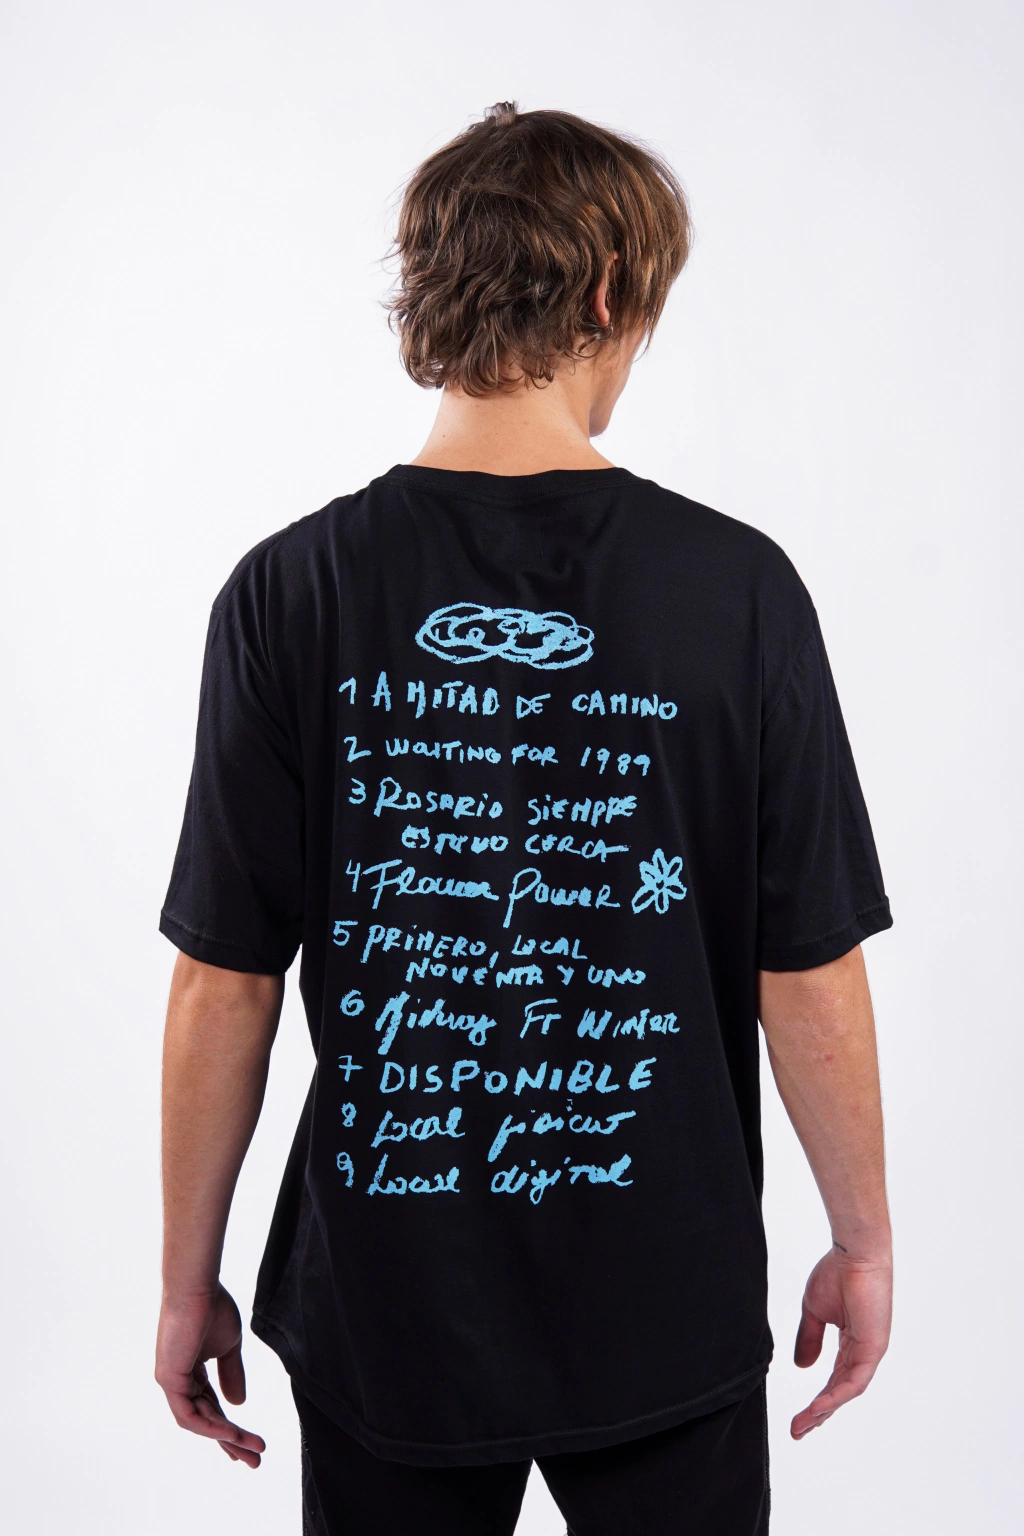 1 A MITAD DE CAMINO
2 WAITING FOR 1989
3 ROSARIO SIEMPRE
ESTUVO CERCA
4 Flower Power
5 PRIMERO, LOCAL
NOVENTA Y UNO
6 Midway FT WINTER
7 DISPONIBLE
8 Local físico
9 Local digital